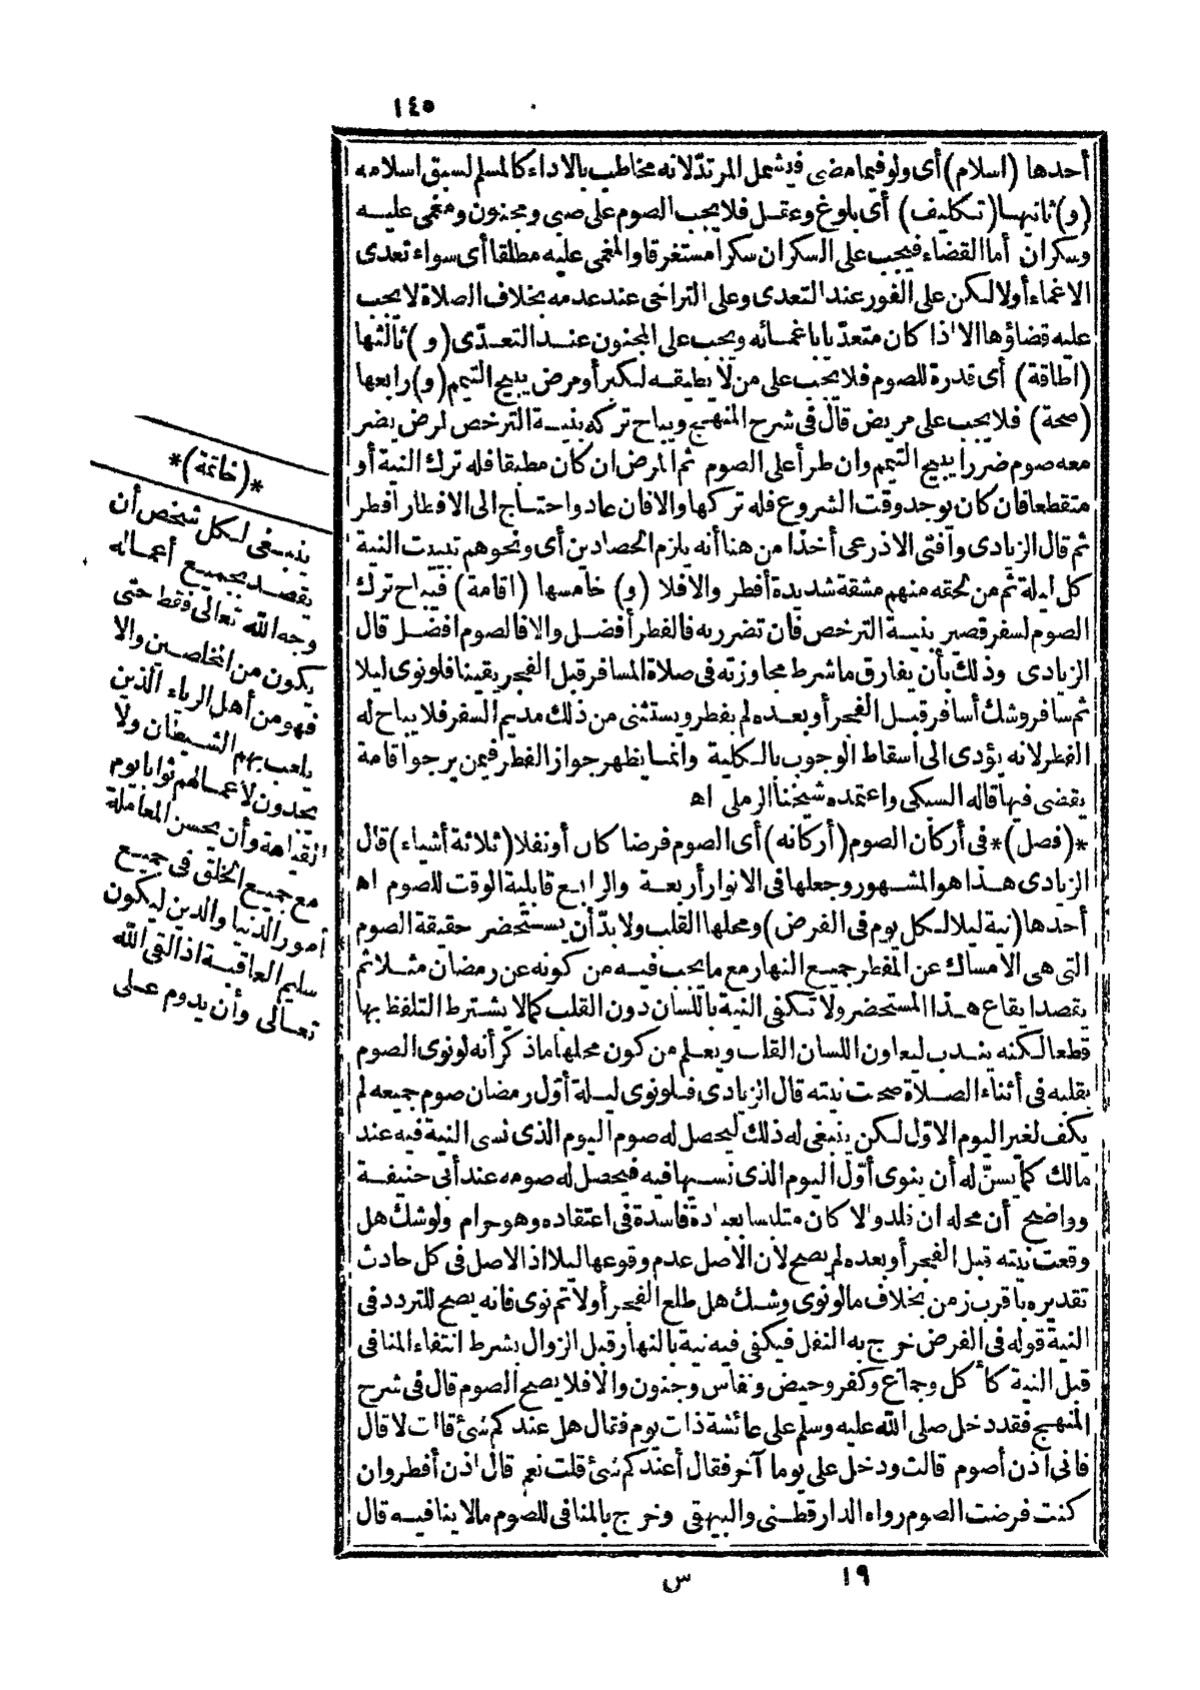 ١٤٥
أحدها (اسلام) أى ولو فيما مضى فيشمل المرتد لانه مخاطب بالاداء كالمسلم لسبق اسلامه
(و) ثانيها (تكليف) أى بلوغ وعقل فلا يجب الصوم على صبى ومجنون ومغمى عليه
وسكران أما القضاء فيجب على السكران سكرا مستغرقا والمغمى عليه مطلقا أى سواء تعدى
الاغماء أولا لكن على الفور عند التعدى وعلى التراخى عند عدمه بخلاف الصلاة لا يجب
عليه قضاؤها الا اذا كان متعدّيا باغمائه ويجب على المجنون عند التعدّى (و) ثالثها
(اطاقة) أى قدرة للصوم فلا يجب على من لا يطيقه لكبر أو مرض يبيح التيمم (و) رابعها
(صحة) فلا يجب على مريض قال فى شرح المنهج ويباح تركه بنية الترخص لمرض يضر
معه صوم ضررا يبيح التيمم وان طرأ على الصوم ثم المرض ان كان مطبقا فله ترك النية أو
متقطعا فان كان يوجد وقت الشروع فله تركها والا فان عاد واحتاج الى الافطار أفطر
ثم قال الزيادى وأفتى الاذرعى أخذا من هنا أنه يلزم الحصادين أى ونحوهم تبييت النية
كل ليلة ثم من لحقه منهم مشقة شديدة أفطر والا فلا (و) خامسها (اقامة) فيباح ترك
الصوم لسفر قصير بنية الترخص فان تضرر به فالفطر أفضل والا فالصوم افضل قال
الزيادى وذلك بأن يفارق ما شرط مجاوزته فى صلاة المسافر قبل الفجر يقينا فلو نوى ليلا
ثم سافر وشك أسافر قبل الفجر أو بعده لم يفطر ويستثنى من ذلك مديم السفر فلا يباح له
الفطر لانه يؤدى الى أسقاط الوجوب بالكلية وانما يظهر جواز الفطر فيمن يرجو اقامة
يقضى فيها قاله السبكى واعتمده شيخنا الرملى اه
*(فصل)* فى أركان الصوم (أركانه) أى الصوم فرضا كان أو نفلا (ثلاثة أشياء) قال
الزيادى هذا هو المشهور وجعلها فى الانوار أربعة والرابع قابلية الوقت للصوم اه
أحدها (نية ليلا لكل يوم فى الفرض) ومحلها القلب ولا بدّ أن يستحضر حقيقة الصوم
التى هى الامساك عن المفطر جميع النهار مع ما يجب فيه من كونه عن رمضان مثلا ثم
يقصد ايقاع هذا المستحضر ولا تكفى النية باللسان دون القلب كما لا يشترط التلفظ بها
قطعا لكنه يندب ليعاون اللسان القلب ويعلم من كون محلها ما ذكر أنه لو نوى الصوم
بقلبه فى أثناء الصلاة صحت نيته قال الزيادى فلو نوى ليلة أوّل رمضان صوم جميعه لم
يكف لغير اليوم الاوّل لكن ينبغى له ذلك ليحصل له صوم اليوم الذى نسى النية فيه عند
مالك كما يسنّ له أن ينوى أوّل اليوم الذى نسيها فيه فيحصل له صومه عند أبى حنيفة
وواضح أن محله ان قلد والا كان متلبسا بعبادة فاسدة فى اعتقاده وهو حرام ولو شك هل
وقعت نيته قبل الفجر أو بعده لم يصح لأن الأصل عدم وقوعها ليلا اذ الاصل فى كل حادث
تقديره باقرب زمن بخلاف ما لو نوى وشك هل طلع الفجر أولا ثم نوى فانه يصح للتردد فى
النية قوله فى الفرض خرج به النفل فيكفى فيه نية بالنهار قبل الزوال بشرط انتفاء المنافى
قبل النية كأكل وجماع وكفر وحيض ونفاس وجنون والا فلا يصح الصوم قال فى شرح
المنهج فقد دخل صلى الله عليه وسلم على عائشة ذات يوم فقال هل عندكم شئ قالت لا قال
فانى اذن أصوم قالت ودخل على يوما آخر فقال أعندكم شئ قلت نعم قال اذن أفطر وان
كنت فرضت الصوم رواه الدارقطنى والبيهقى وخرج بالمنافى للصوم ما لا ينافيه قال
*(خاتمة)*
ينبغى لكل شخص أن
يقصد بجميع أعماله
وجه الله تعالى فقط حتى
يكون من المخلصين والا
فهو من أهل الرياء الذين
يلعب بهم الشيطان ولا
يجدون لاعمالهم ثوابا يوم
القيامة وأن يحسن المعاملة
مع جميع الخلق فى جميع
أمور الدنيا والدين ليكون
سليم العاقبة اذا لقى الله
تعالى وأن يدوم على
١٩ س